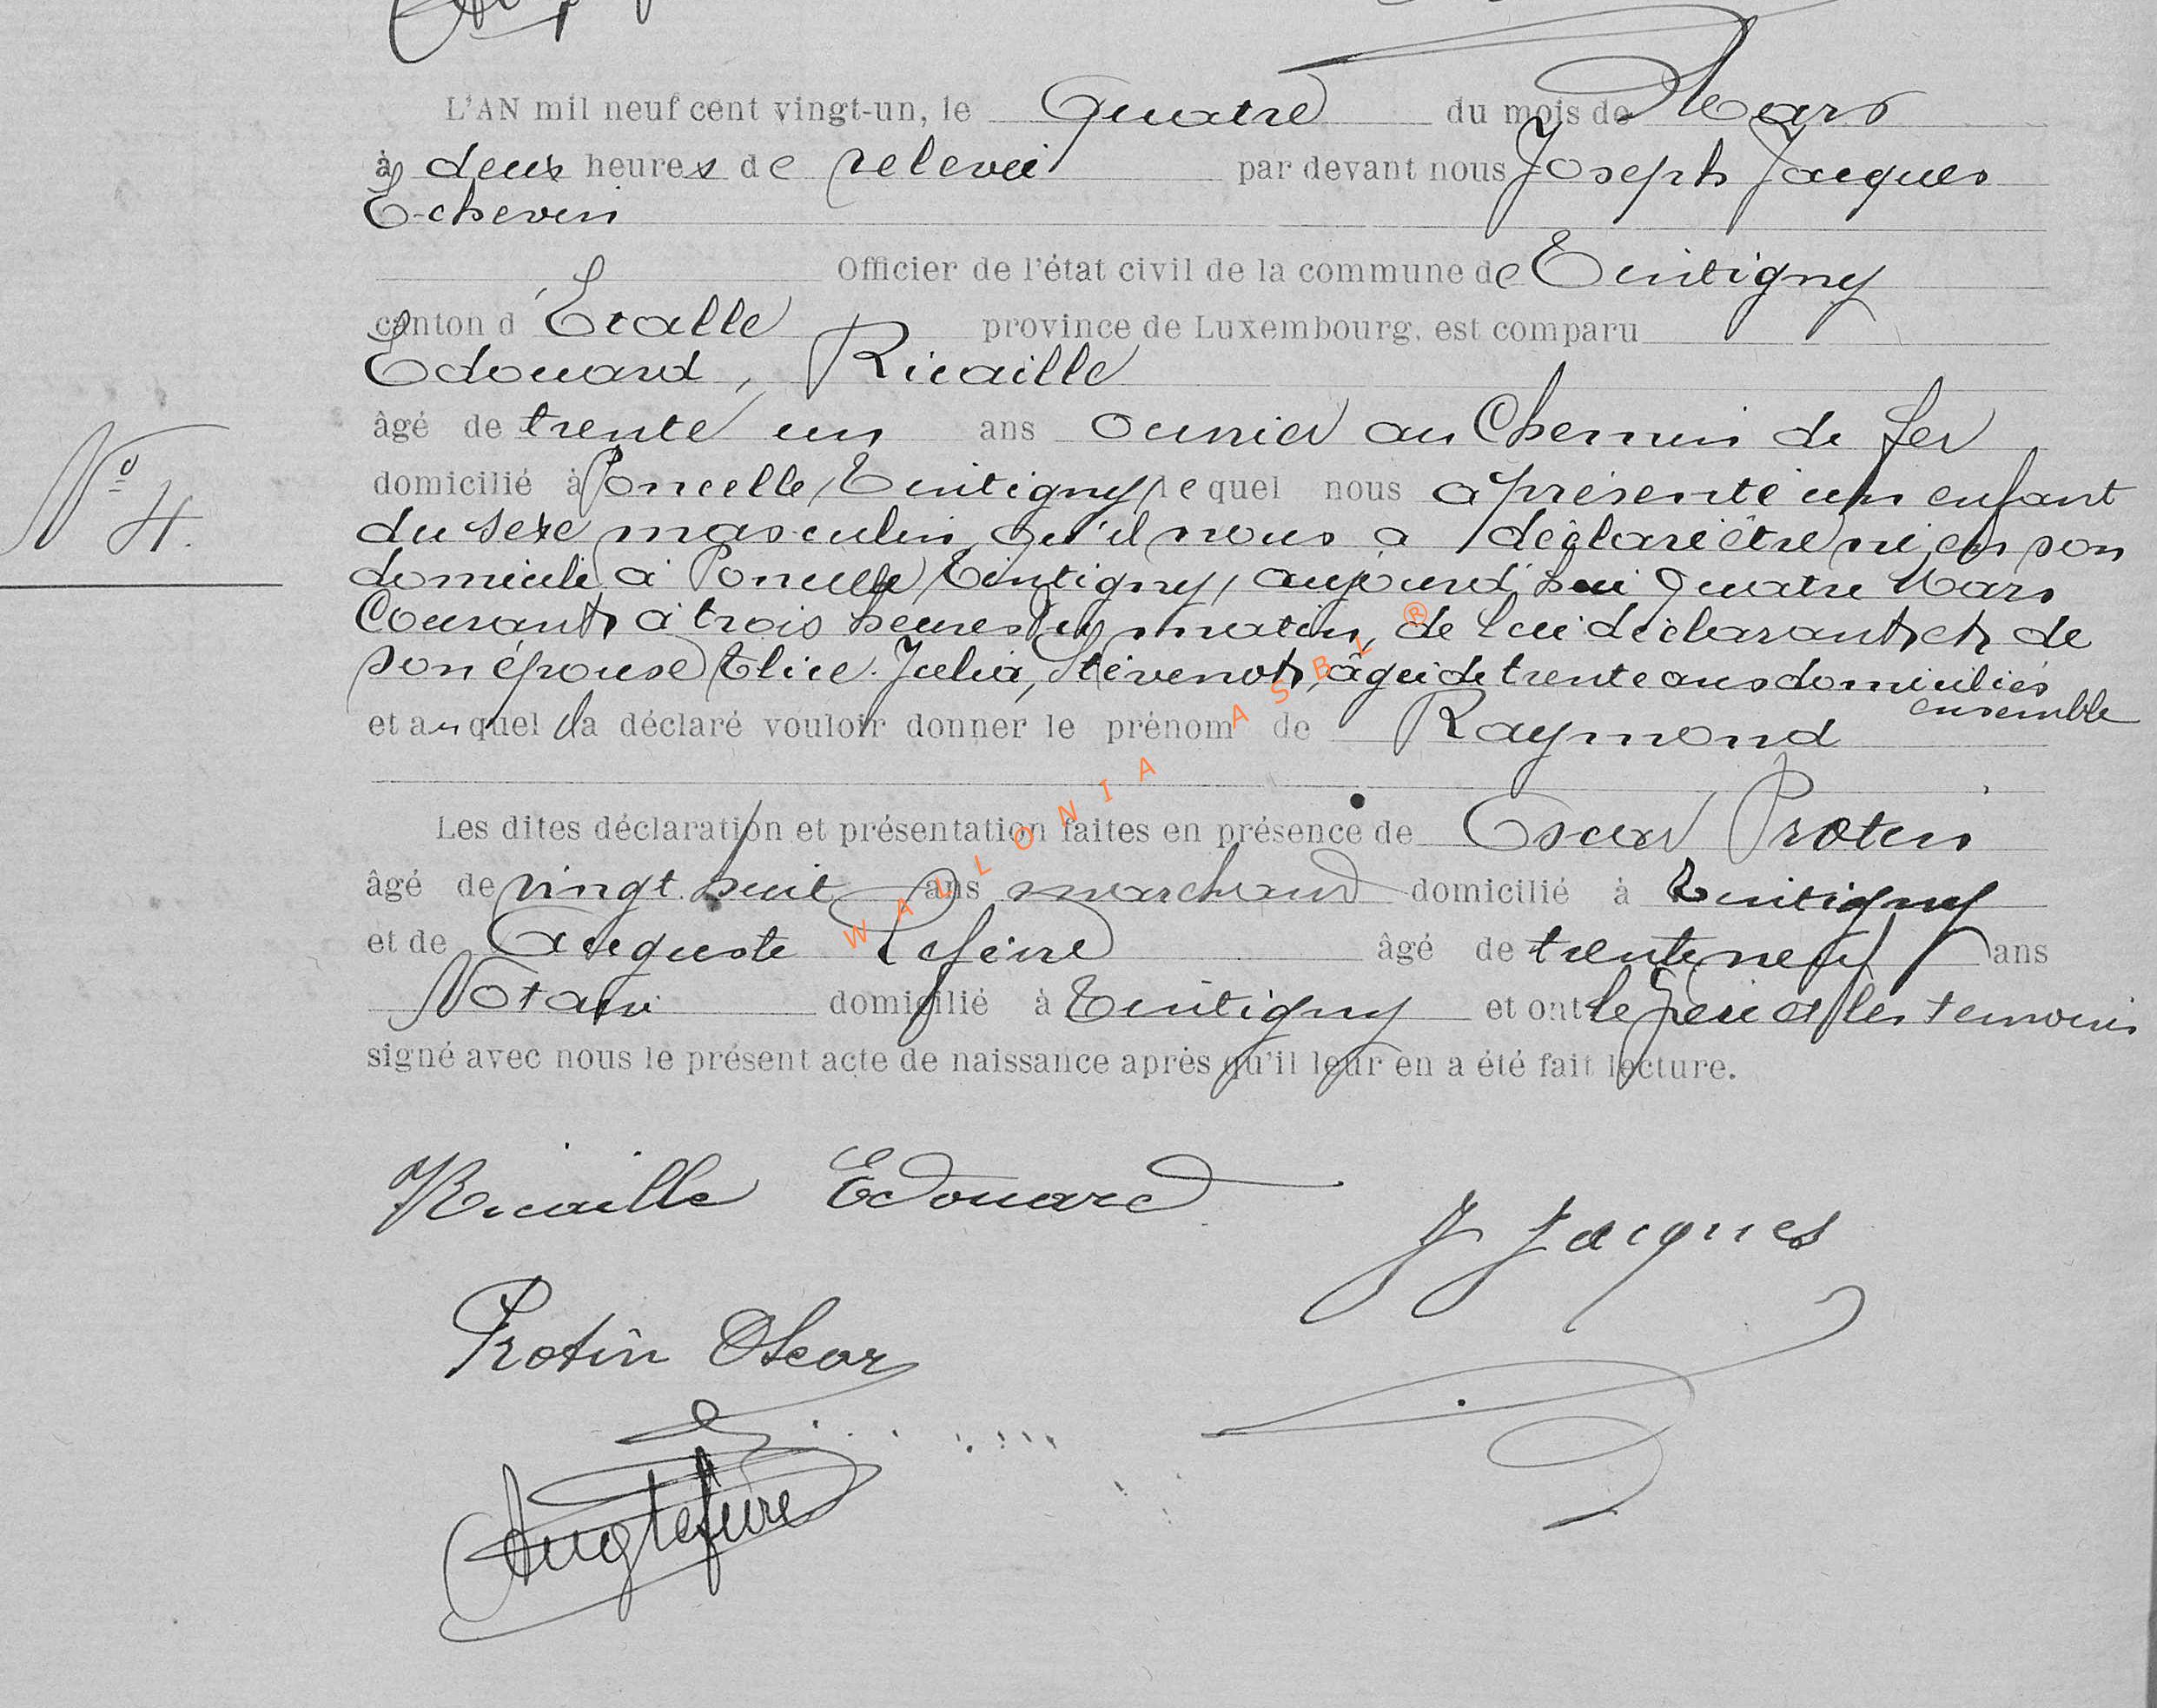 L'AN mil neuf cent vingt-un, le Quatre du mois de Mars
à deux heures de relevée par devant nous Joseph Jacques
Echevin
Officier de l'état civil de la commune de Tintigny
canton d'Etalle province de Luxembourg, est comparu
Edouard, Ricaille
âgé de trente un ans ouvrier au Chemin de fer
domicilié à Poncelle, Tintigny, lequel nous a présenté un enfant
du sexe masculin, qu'il nous a déclaré être né, en son
domicile à Poncelle, Tintigny, aujourd'hui Quatre Mars
Courant, à trois heures du matin, de lui déclarant, et de
son épouse Elise Julia, Stévenot, âgée de trente ans domiciliés
ensemble
et auquel il a déclaré vouloir donner le prénom de Raymond
Les dites déclaration et présentation faites en présence de Oscar Protin
âgé de vingt huit ans marchand domicilié à Tintigny
et de Auguste Lefèvre âgé de trente neuf ans
Notaire domicilié à Tintigny et ont le père et les témoins
signé avec nous le présent acte de naissance après qu'il leur en a été fait lecture.
N° 4.
Ricaille Edouard
J Jacques
Protin Oscar
Aug Lefèvre
WALLONIA ASBL ®